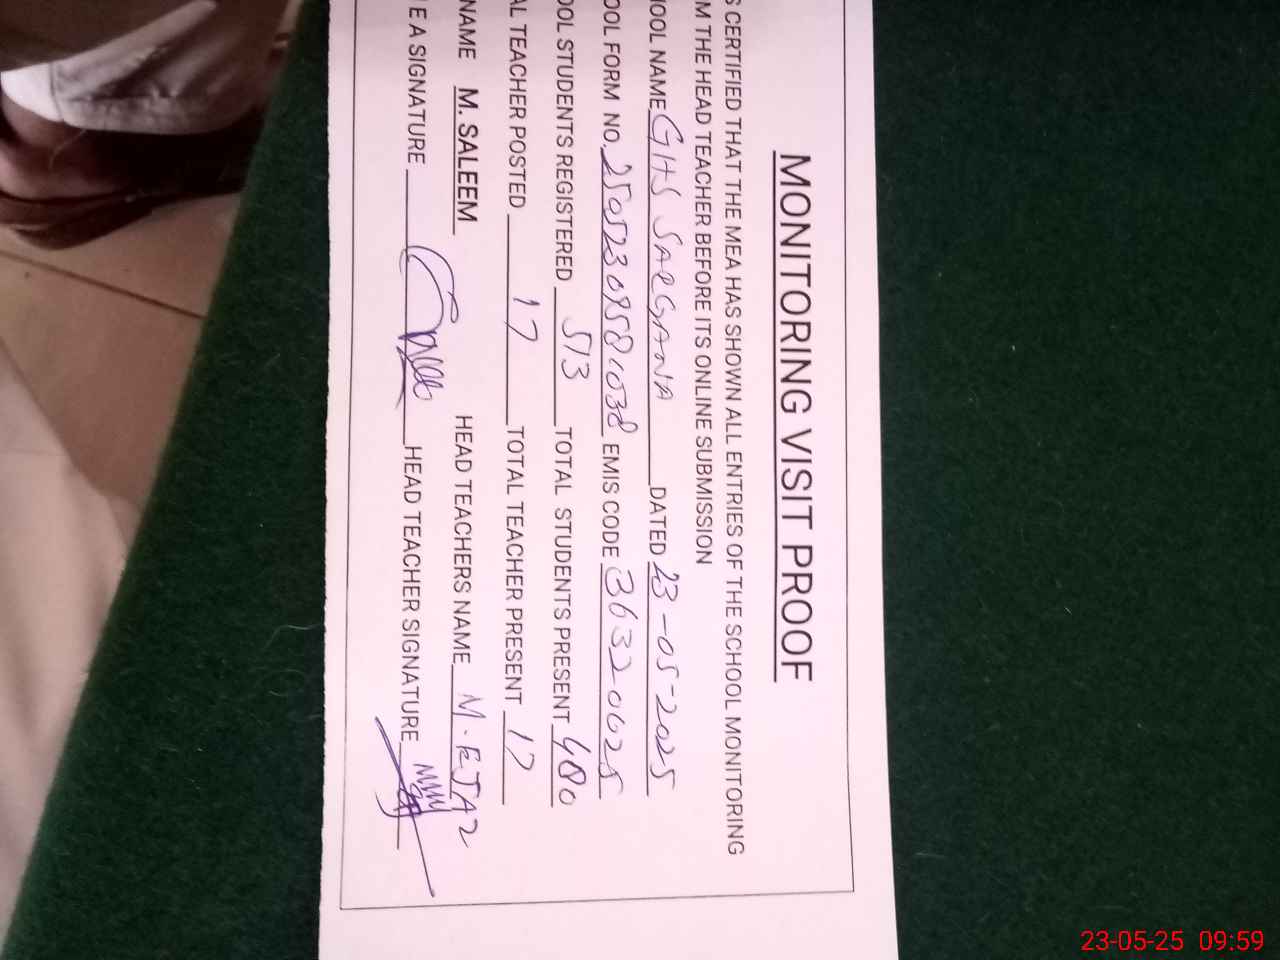 MONITORING VISIT PROOF
S CERTIFIED THAT THE MEA HAS SHOWN ALL ENTRIES OF THE SCHOOL MONITORING
M THE HEAD TEACHER BEFORE ITS ONLINE SUBMISSION
OOL NAME GHS SARGANA DATED 23-05-2025
OOL FORM NO. EMIS CODE 36320625
OOL STUDENTS REGISTERED 513 TOTAL STUDENTS PRESENT 400
AL TEACHER POSTED 17 TOTAL TEACHER PRESENT 17
NAME M. SALEEM HEAD TEACHERS NAME M. EJAZ
E A SIGNATURE HEAD TEACHER SIGNATURE
23-05-25 09:59